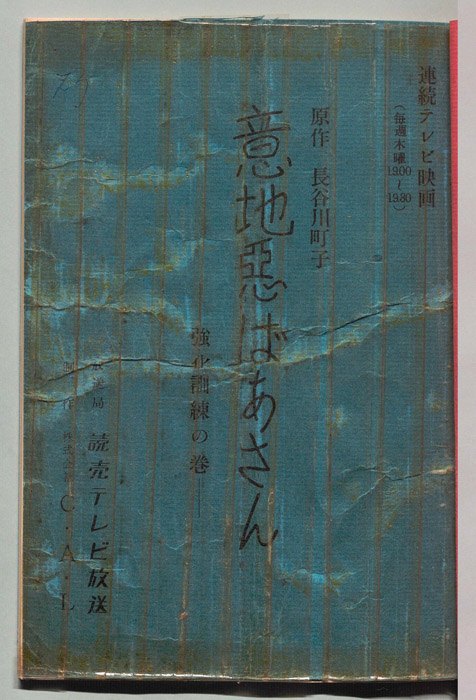 連続テレビ映画
(毎週木曜19.00~19.30)
原作 長谷川町子
意地悪ばあさん
強化訓練の巻――
放送局 読売テレビ放送
制作 株式会社 C・A・L